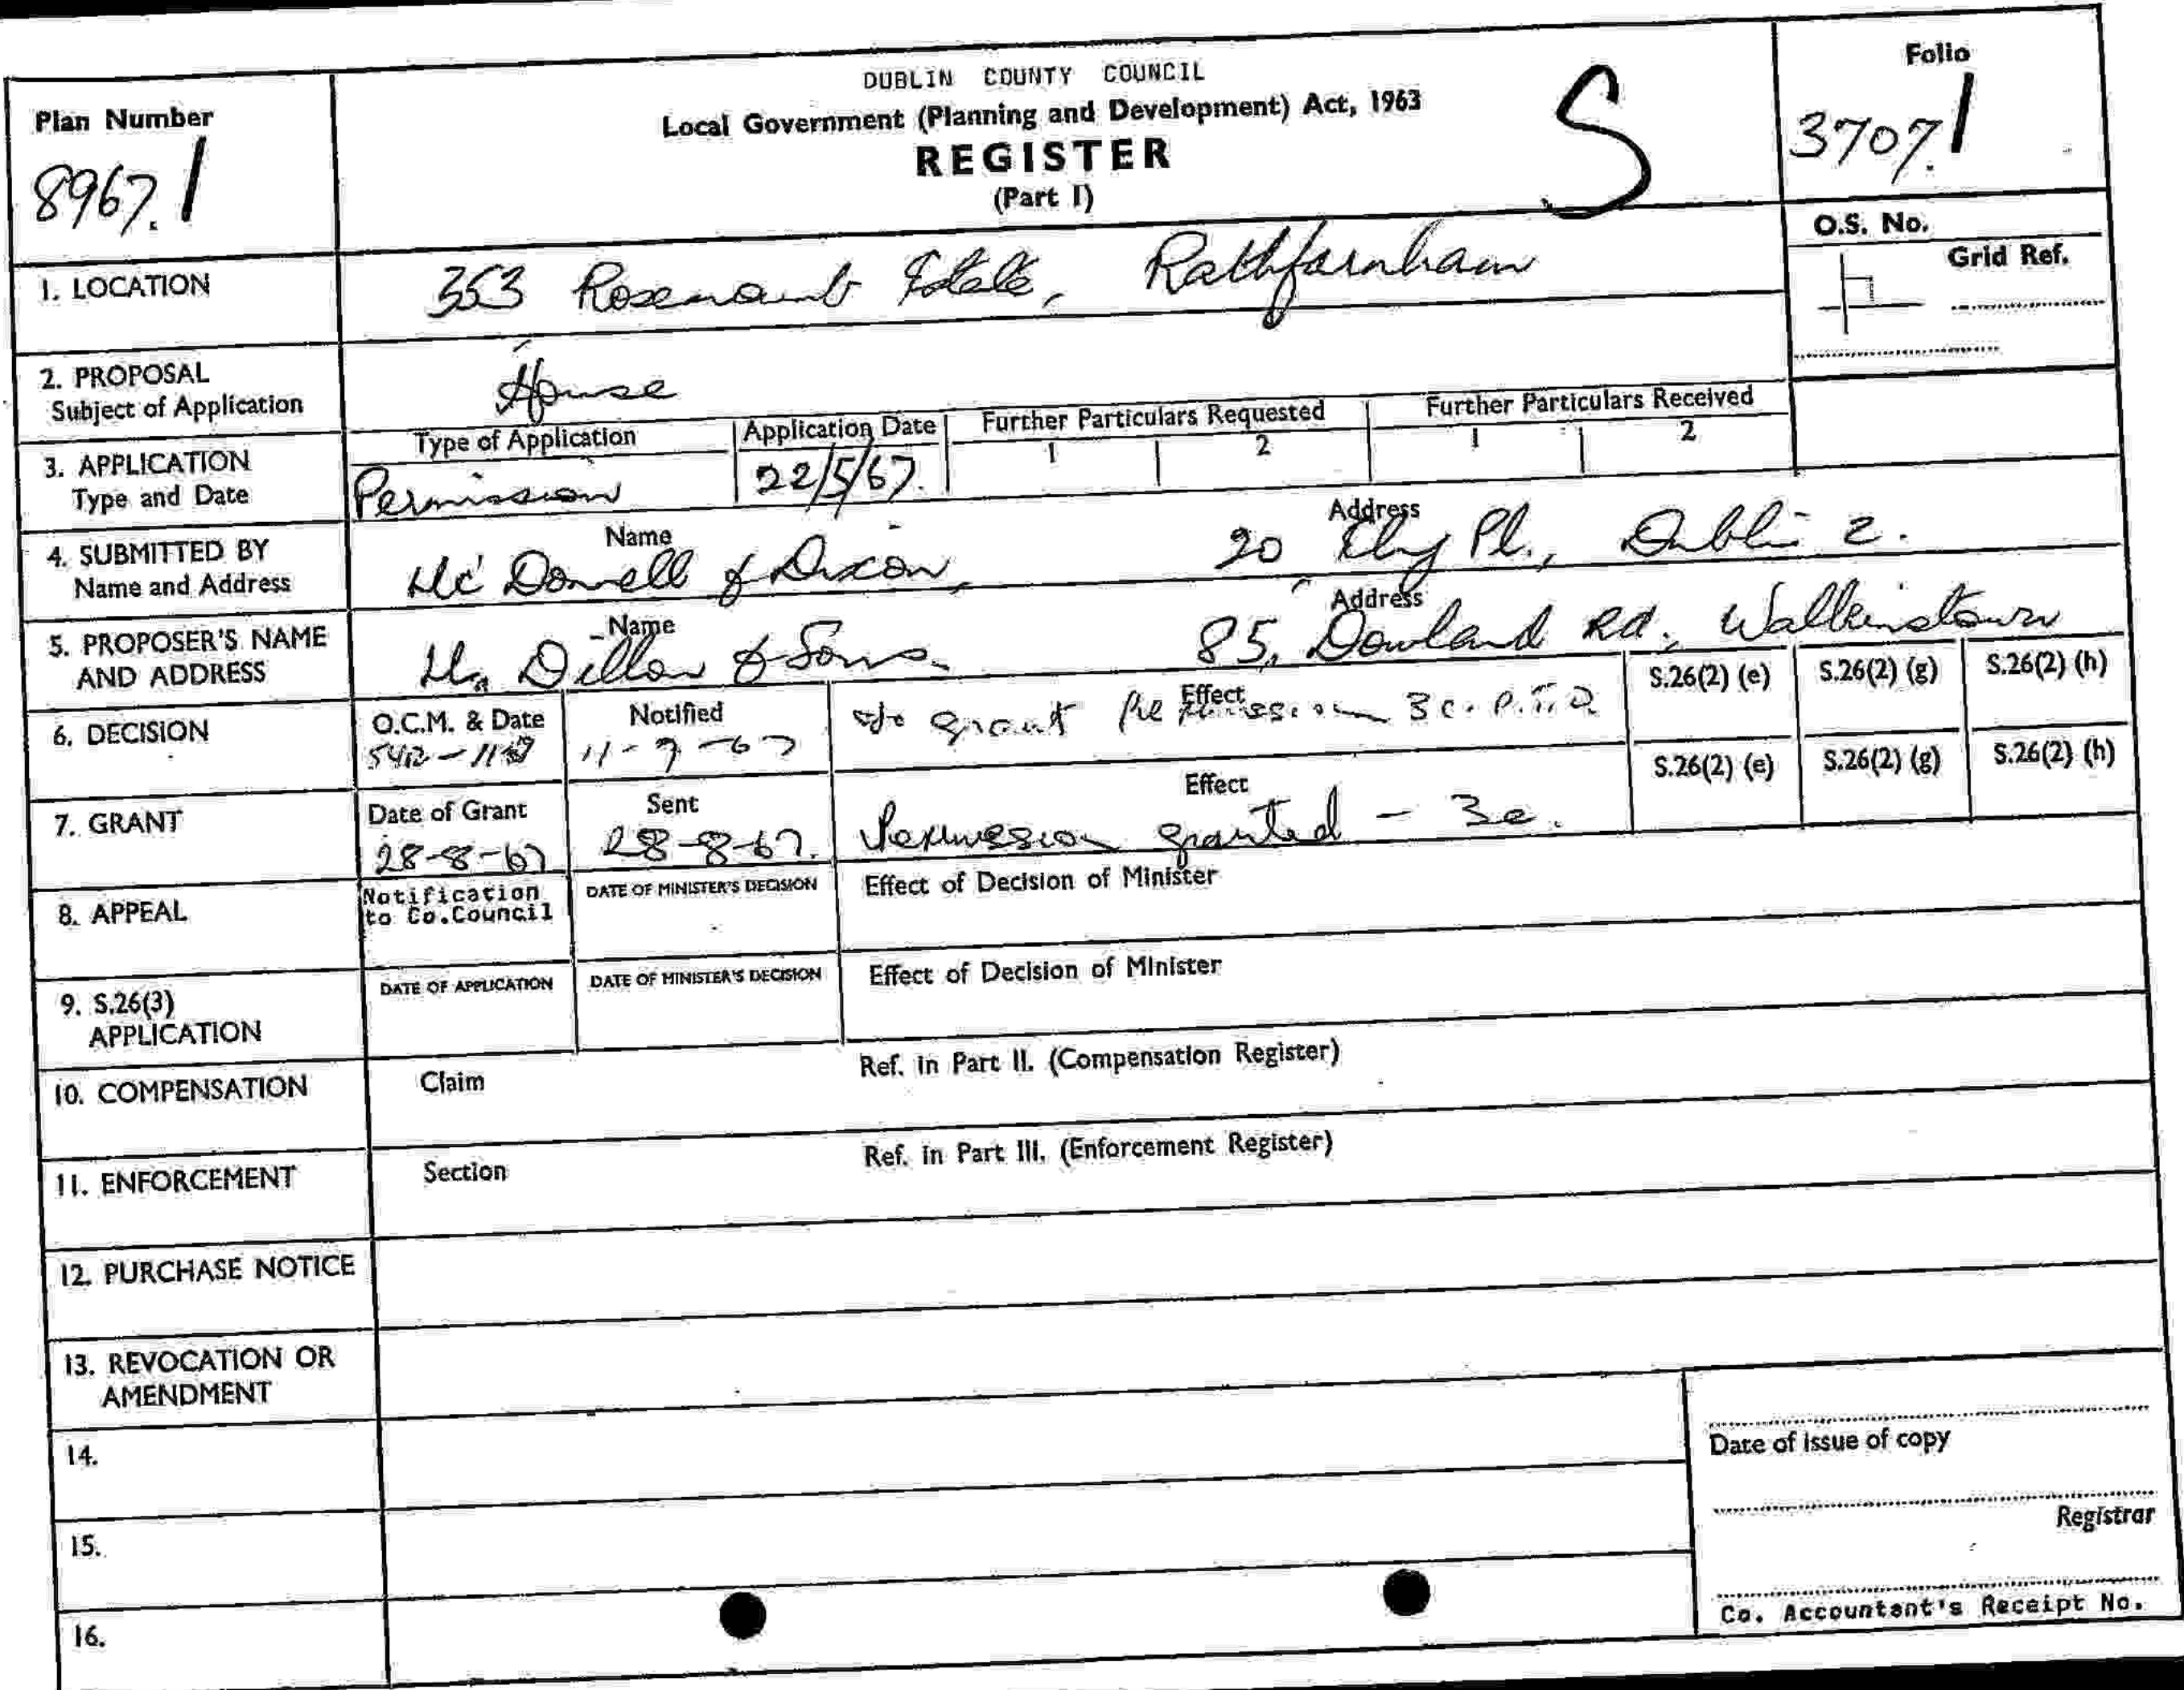 DUBLIN COUNTY COUNCIL
Local Government (Planning and Development) Act, 1963
REGISTER
(Part I)
S
Plan Number
8967.1
Folio
3707.1
O.S. No.
Grid Ref.
1. LOCATION
353 Rosemount Estate, Rathfarnham
2. PROPOSAL
Subject of Application
House
3. APPLICATION
Type and Date
Type of Application
Permission
Application Date
22/5/67.
Further Particulars Requested
1 2
Further Particulars Received
1 2
4. SUBMITTED BY
Name and Address
Name
Mc Donnell & Dixon,
Address
20 Ely Pl., Dublin 2.
5. PROPOSER'S NAME
AND ADDRESS
Name
Dillon & Sons.
Address
85, Dowland Rd. Walkinstown
6. DECISION
O.C.M. & Date
Notified
11-7-67
Effect
to grant Permission 3c. P.T.O.
S.26(2) (e) S.26(2) (g) S.26(2) (h)
7. GRANT
Date of Grant
28-8-67
Sent
28-8-67.
Effect
Permission granted - 3c.
S.26(2) (e) S.26(2) (g) S.26(2) (h)
8. APPEAL
Notification
to Co.Council
DATE OF MINISTER'S DECISION
Effect of Decision of Minister
9. S.26(3)
APPLICATION
DATE OF APPLICATION
DATE OF MINISTER'S DECISION
Effect of Decision of Minister
10. COMPENSATION
Claim
Ref. in Part II. (Compensation Register)
11. ENFORCEMENT
Section
Ref. in Part III. (Enforcement Register)
12. PURCHASE NOTICE
13. REVOCATION OR
AMENDMENT
14.
15.
16.
Date of issue of copy
Registrar
Co. Accountant's Receipt No.